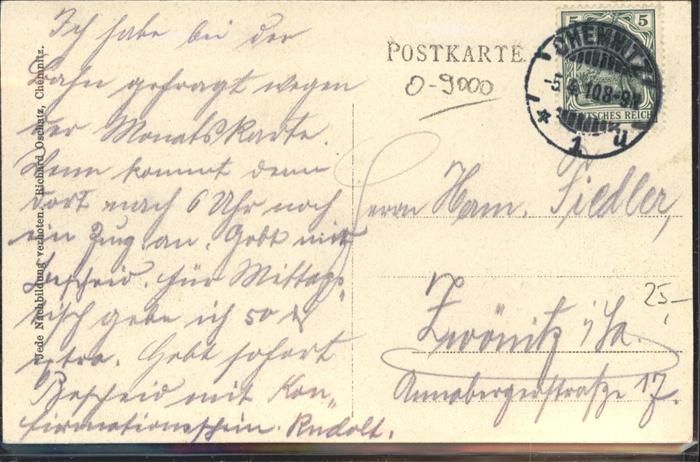 Ich habe bei der
Bahn gefragt wegen
der Monatskarte.
Wenn kommt denn
dort nach 6 Uhr noch
ein Zug an. Gebt mir
Bescheid. für Mittags-
tisch gebe ich 50 ₰
extra. Gebt sofort
Bescheid mit Kon-
firmationsschein. Rudolf.
Jede Nachbildung verboten. Richard Oschatz, Chemnitz.
POSTKARTE
0-9000
5 5
DEUTSCHES REICH
CHEMNITZ
-5 4 10.8-9
* 1 u
Herrn Ham. Fiedler,
Zwönitz i/Sa.
Annabergerstraße 17.
25,-